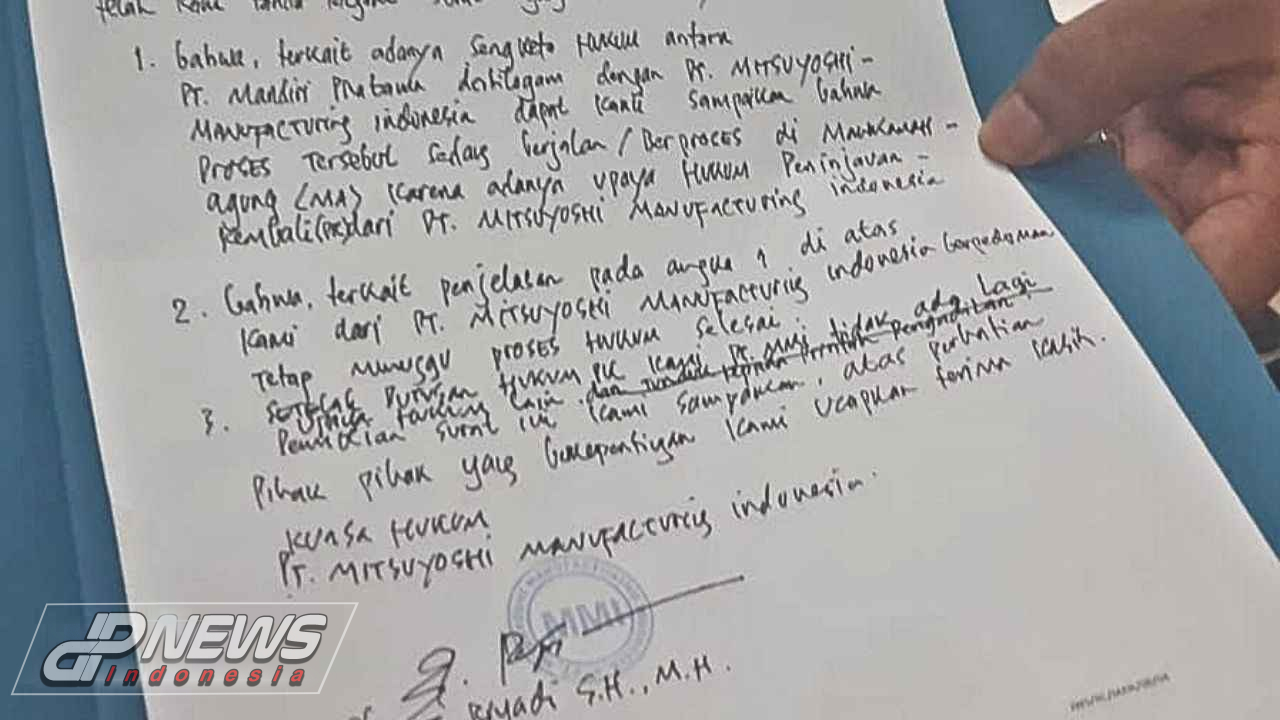 telah kami
1. Bahwa, terkait adanya sengketa Hukum antara
PT. Mandiri Prabawa dengan PT. MITSUYOSHI -
MANUFACTURING indonesia dapat kami sampaikan bahwa
PROSES TERSEBUT sedang berjalan / Berproses di MAHKAMAH -
agung (MA) karena adanya upaya HUKUM Peninjauan -
kembali (PK) dari PT. MITSUYOSHI MANUFACTURING indonesia
2. bahwa, terkait penjelasan pada angka 1 di atas
kami dari PT. MITSUYOSHI MANUFACTURING indonesia berpedoman
Tetap menunggu proses HUKUM selesai.
setelah putusan HUKUM PK kami PT. MMI tidak ada Lagi
upaya HUKUM Lain dan tunduk
3. Demikian surat ini kami sampaikan, atas perhatian
Pihak pihak yang berkepentingan kami ucapkan terima kasih.
KUASA HUKUM
PT. MITSUYOSHI MANUFACTURING indonesia.
MMI
S.H., M.H.
DP NEWS
Indonesia